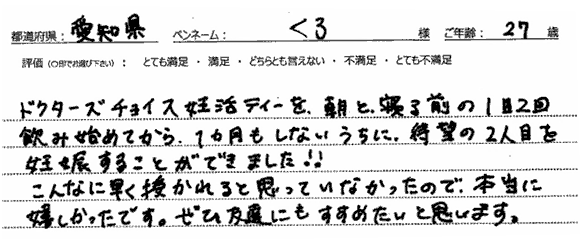 都道府県： 愛知県 ペンネーム： くろ 様 ご年齢： 27 歳
評価（○印でお選び下さい）： とても満足 ・ 満足 ・ どちらとも言えない ・ 不満足 ・ とても不満足
ドクターズチョイス妊活ティーを、朝と、寝る前の1日2回
飲み始めてから、1カ月もしないうちに、待望の2人目を
妊娠することができました!!
こんなに早く授かれると思っていなかったので、本当に
嬉しかったです。ぜひ友達にもすすめたいと思います。